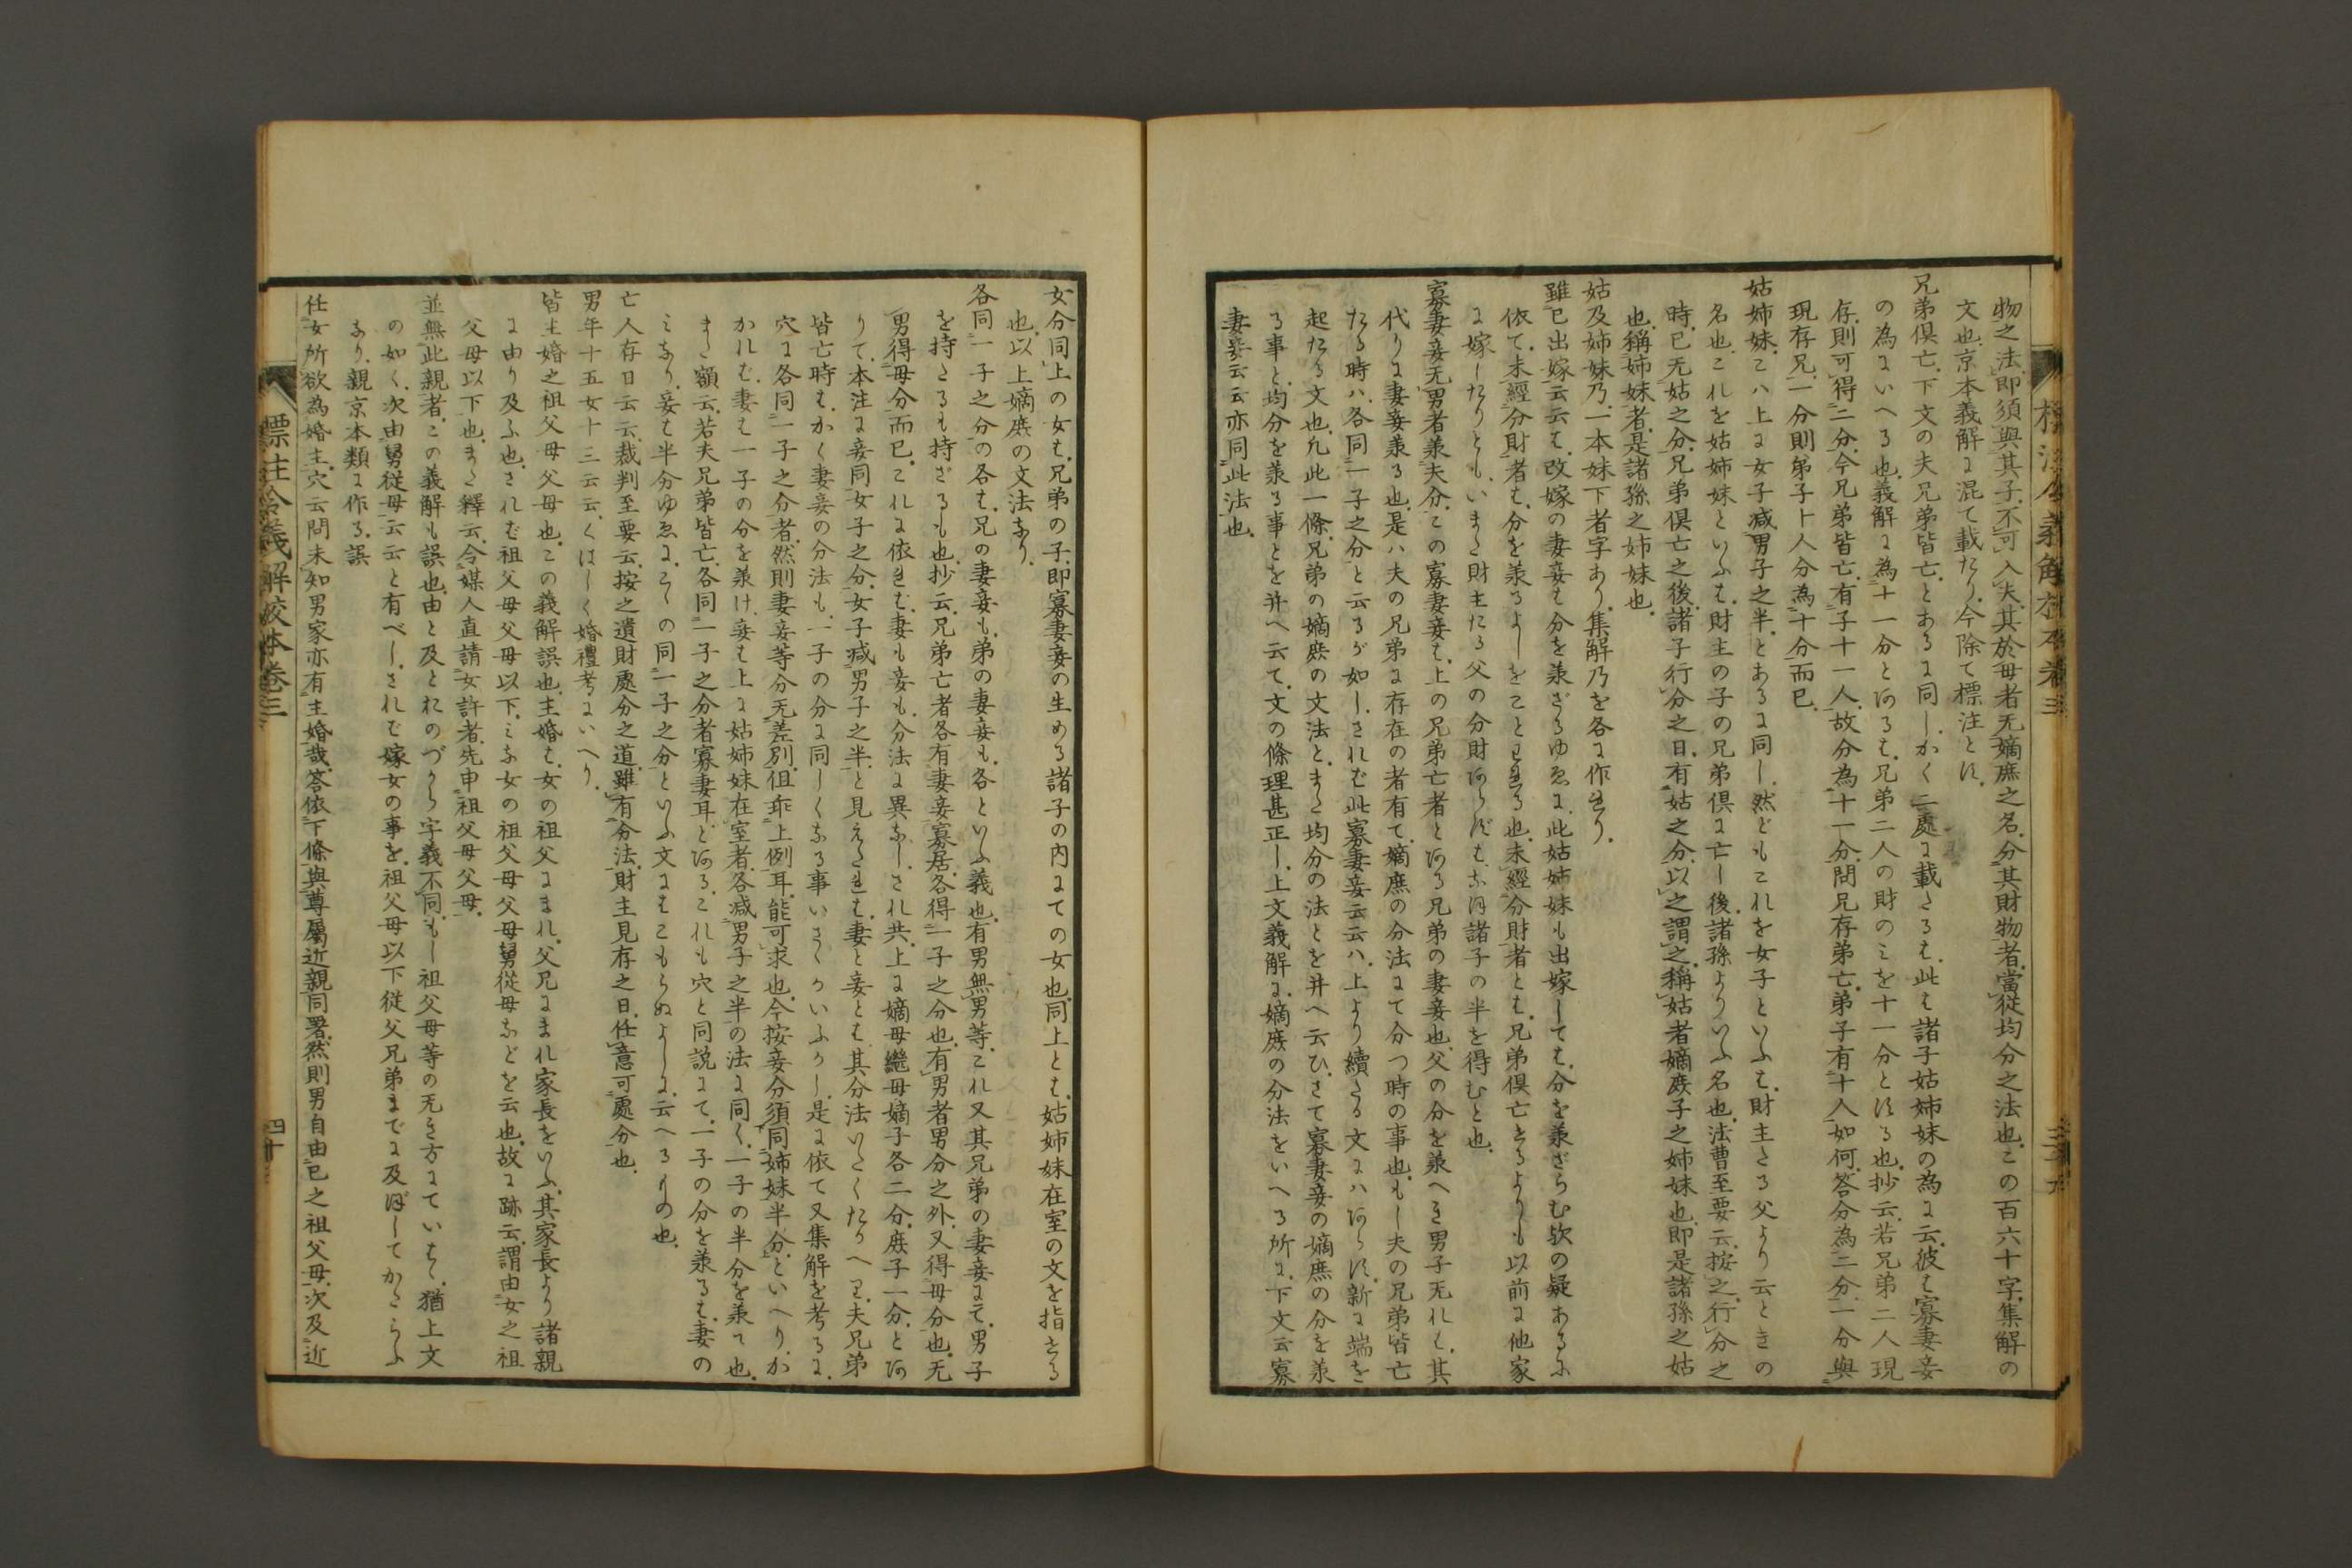 物之法、即須與其子、不可入夫、其於母者无嫡庶之名、分其財物者、當從均分之法也、この百六十字、集解の
文也、京本義解に混て載たり、今除て標注とす、
兄弟倶亡、下文の夫兄弟皆亡、とあるに同し、かく二處に載たるは、此は諸子姑姉妹の為に云、彼は寡妻妾
の為にいへる也、義解に為十一分とあるは、兄弟二人の財のみを十一分とする也、抄云、若兄弟二人現
存、則可得二分、今兄弟皆亡、有子十一人、故分為十一分、問兄存弟亡、弟子有十人、如何、答分為二分、一分與
現存兄、一分則弟子十人分為十分而已、
姑姉妹、こハ上に女子减男子之半、とあるに同し、然どもこれを女子といふは、財主たる父より云ときの
名也、これを姑姉妹といふは、財主の子の兄弟倶に亡し後、諸孫よりいふ名也、法曹至要云、按之、行分之
時、已无姑之分、兄弟倶亡之後、諸子行分之日、有姑之分、以之謂之、稱姑者、嫡庶子之姉妹也、即是諸孫之姑
也、稱姉妹者、是諸孫之姉妹也、
姑及姉妹乃、一本妹下者字あり、集解乃を各に作れり、
雖已出嫁云云は、改嫁の妻妾は分を羕ざるゆゑに、此姑姉妹も出嫁しては、分を羕ざらむ歟の疑あるに
依て、未經分財者は、分を羕るよしをことわれる也、未經分財者とは、兄弟倶亡せるよりも以前に他家
に嫁したりとも、いまた財主たる父の分財あらずは、なほ諸子の半を得むと也、
寡妻妾无男者羕夫分、この寡妻妾は、上の兄弟亡者とある兄弟の妻妾也、父の分を羕へき男子无れは、其
代りに妻妾羕る也、是ハ夫の兄弟に存在の者有て、嫡庶の分法にて分つ時の事也、もし夫の兄弟皆亡
たる時ハ、各同一子之分と云るが如し、されは此寡妻妾云云ハ、上より續たる文にハあらす、新に端を
起たる文也、凡此一條、兄弟の嫡庶の文法と、また均分の法とを并へ云ひ、さて寡妻妾の嫡庶の分を羕
る事と、均分を羕る事とを并へ云て、文の條理甚正し、上文義解に、嫡庶の分法をいへる所に、下文云寡
妻妾云云亦同此法也、
女分同上の女は、兄弟の子、即寡妻妾の生める諸子の内にての女也、同上とは、姑姉妹在室の文を指せる
也、以上嫡庶の文法なり、
各同一子之分の各は、兄の妻妾も、弟の妻妾も、各といふ義也、有男無男等、これ又其兄弟の妻妾にて、男子
を持たるも持ざるも也、抄云、兄弟亡者各有妻妾、寡居、各得一子之分也、有男者男分之外、又得母分也、无
男得母分而已、これに依れは、妻も妾も、分法に異なし、され共、上に嫡母繼母嫡子各二分、庶子一分、とあ
りて、本注に妾同女子之分、女子减男子之半、と見えたれは、妻と妾とは、其分法いたくたかへり、夫兄弟
皆亡時は、かく妻妾の分法も、一子の分に同しくなる事いさゝかいふかし、是に依て又集解を考るに、
穴に各同一子之分者、然則妻妾等分无差別、但乖上例耳、能可求也、今按妾分須同姉妹半分、といへり、か
かれは、妻は一子の分を羕け、妾は上に姑姉妹在室者、各减男子之半の法に同く、一子の半分を羕て也、
また額云、若夫兄弟皆亡、各同一子之分者寡妻耳、とある、これも穴と同説にて、一子の分を羕るは、妻の
みなり、妾は半分ゆゑに、その同一子之分といふ文にはこもらぬよしに、云へるもの也、
亡人存日云云、裁判至要云、按之遺財處分之道、雖有分法、財主見存之日、任意可處分也、
男年十五女十三云云、くはしく婚禮考にいへり、
皆主婚之祖父母父母也、この義解誤也、主婚は、女の祖父にまれ、父兄にまれ家長をいふ、其家長より諸親
に由り及ふ也、されは祖父母父母以下、みな女の祖父母父母舅從母なとを云也、故に跡云、謂由女之祖
父母以下也、また釋云、令媒人直請女許者、先申祖父母父母、
並無此親者、この義解も誤也、由と及とおのづから字義不同、もし祖父母等の无き方にていはゝ、猶上文
の如く、次由舅從母云云と有べし、されは嫁女の事を、祖父母以下從父兄弟まてに及ぼしてかたらふ
なり、親京本類に作る、誤
任女所欲為婚主、穴云問未知男家亦有主婚哉、答依下條與尊屬近親同署、然則男自由己之祖父母、次及近
標注令義解校本卷三
四十